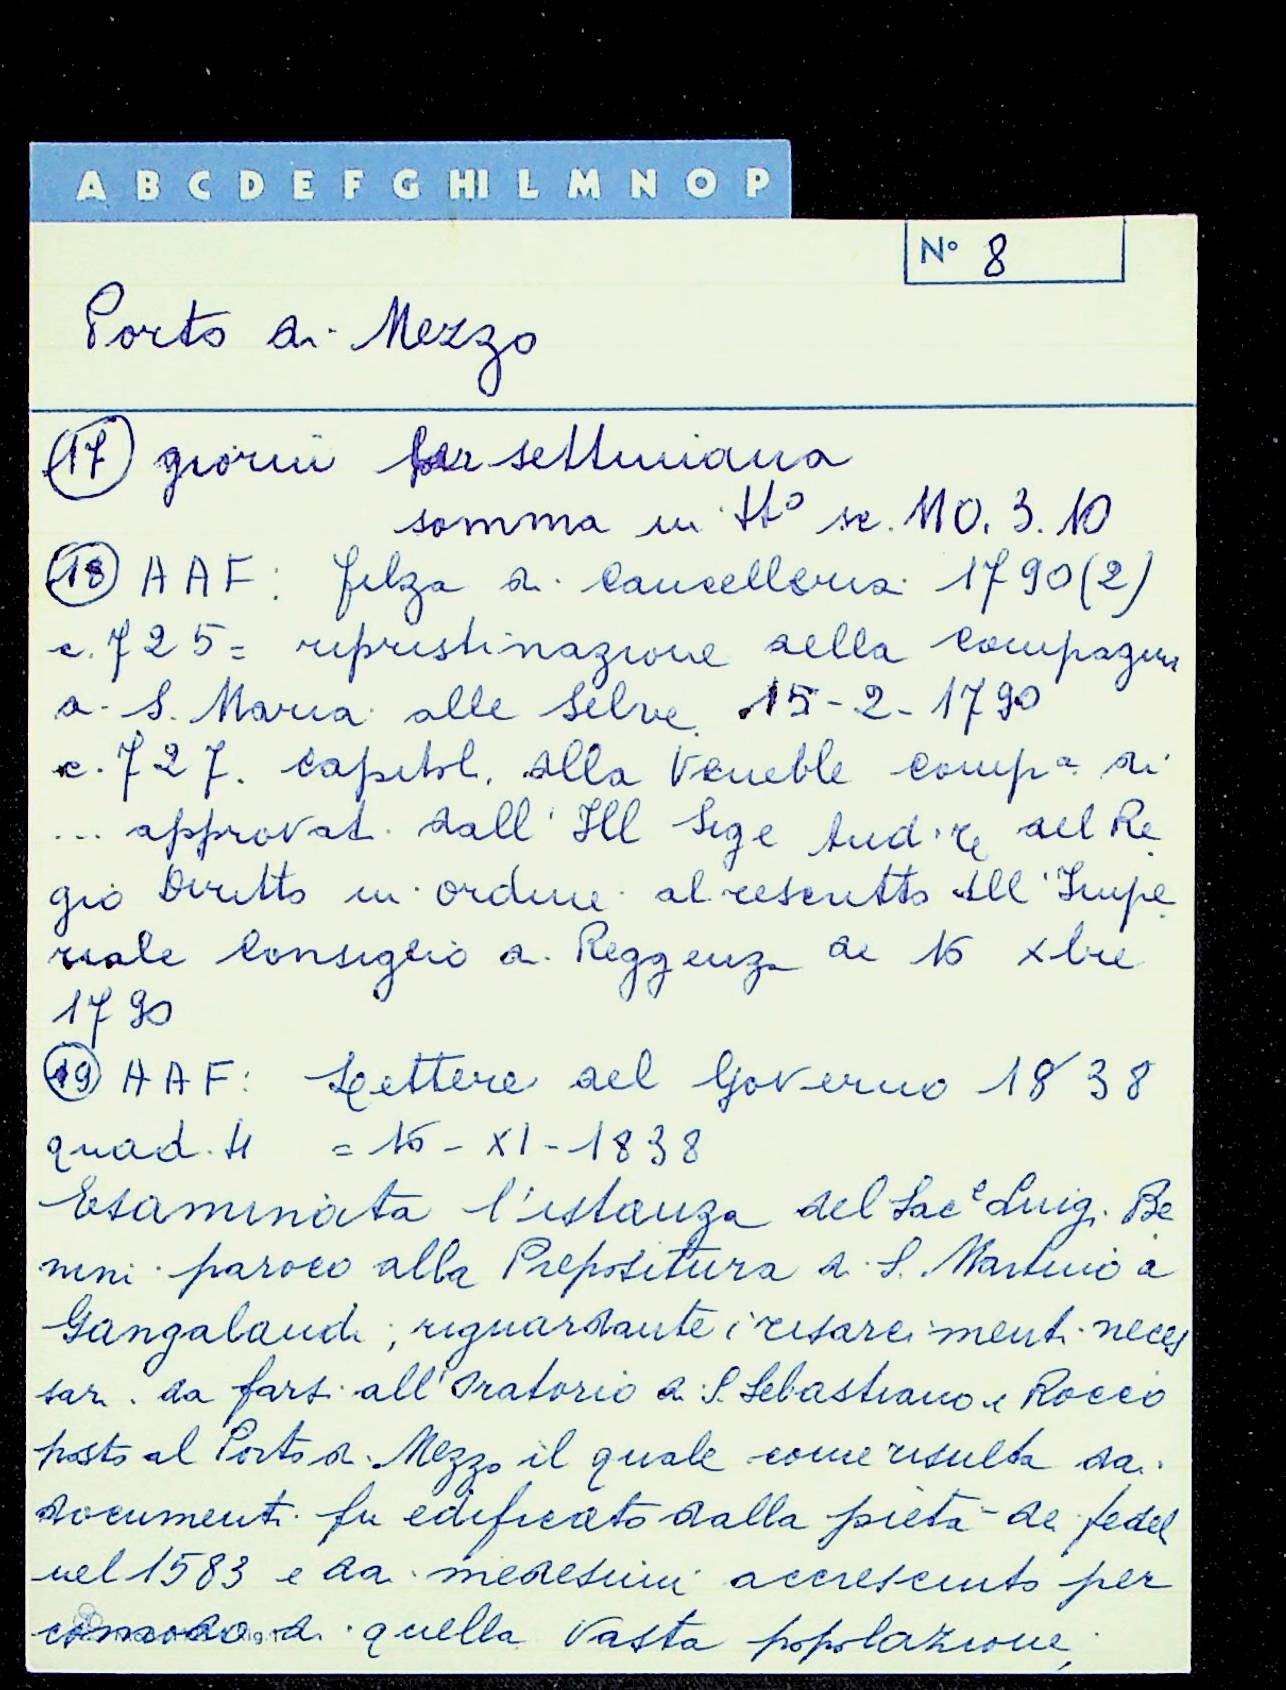 A B C D E F G HI L M N O P
N° 8
Porto di Mezzo
17 giorni per settimana
somma in tt° sc. 110. 3. 10
18 AAF: filza di Cancelleria 1790(2)
c. 725 = ripristinazione della Compagnia
di S. Maria alle Selve 15-2-1790
c. 727. Capitoli della Veneble Compª di
... approvati dall'Ill Sige Aud re del Re
gio Diritto in ordine al rescritto dell'Impe
riale Consiglio di Reggenza de 16 xbre
1790
19 AAF: Lettere del Governo 1838
quad. 4 = 16 - XI - 1838
Esaminata l'istanza del Sacᵉ Luigi Be
nini paroco alla Prepositura di S. Martino a
Gangalandi, riguardante i risarcimenti neces
sari da farsi all'Oratorio di S. Sebastiano e Rocco
posto al Porto di Mezzo il quale come resulta da
documenti fu edificato dalla pietà dei fedel
nel 1583 e dai medesimi accresciuto per
comodo di quella vasta popolazione,